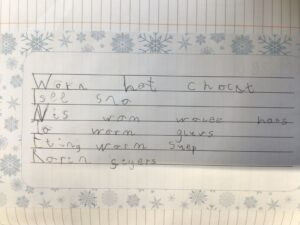 Worm hot choclt
Icel sno
Nis worm wolee hats
to worm gluvs
Eting worm Suep
Rorin segers